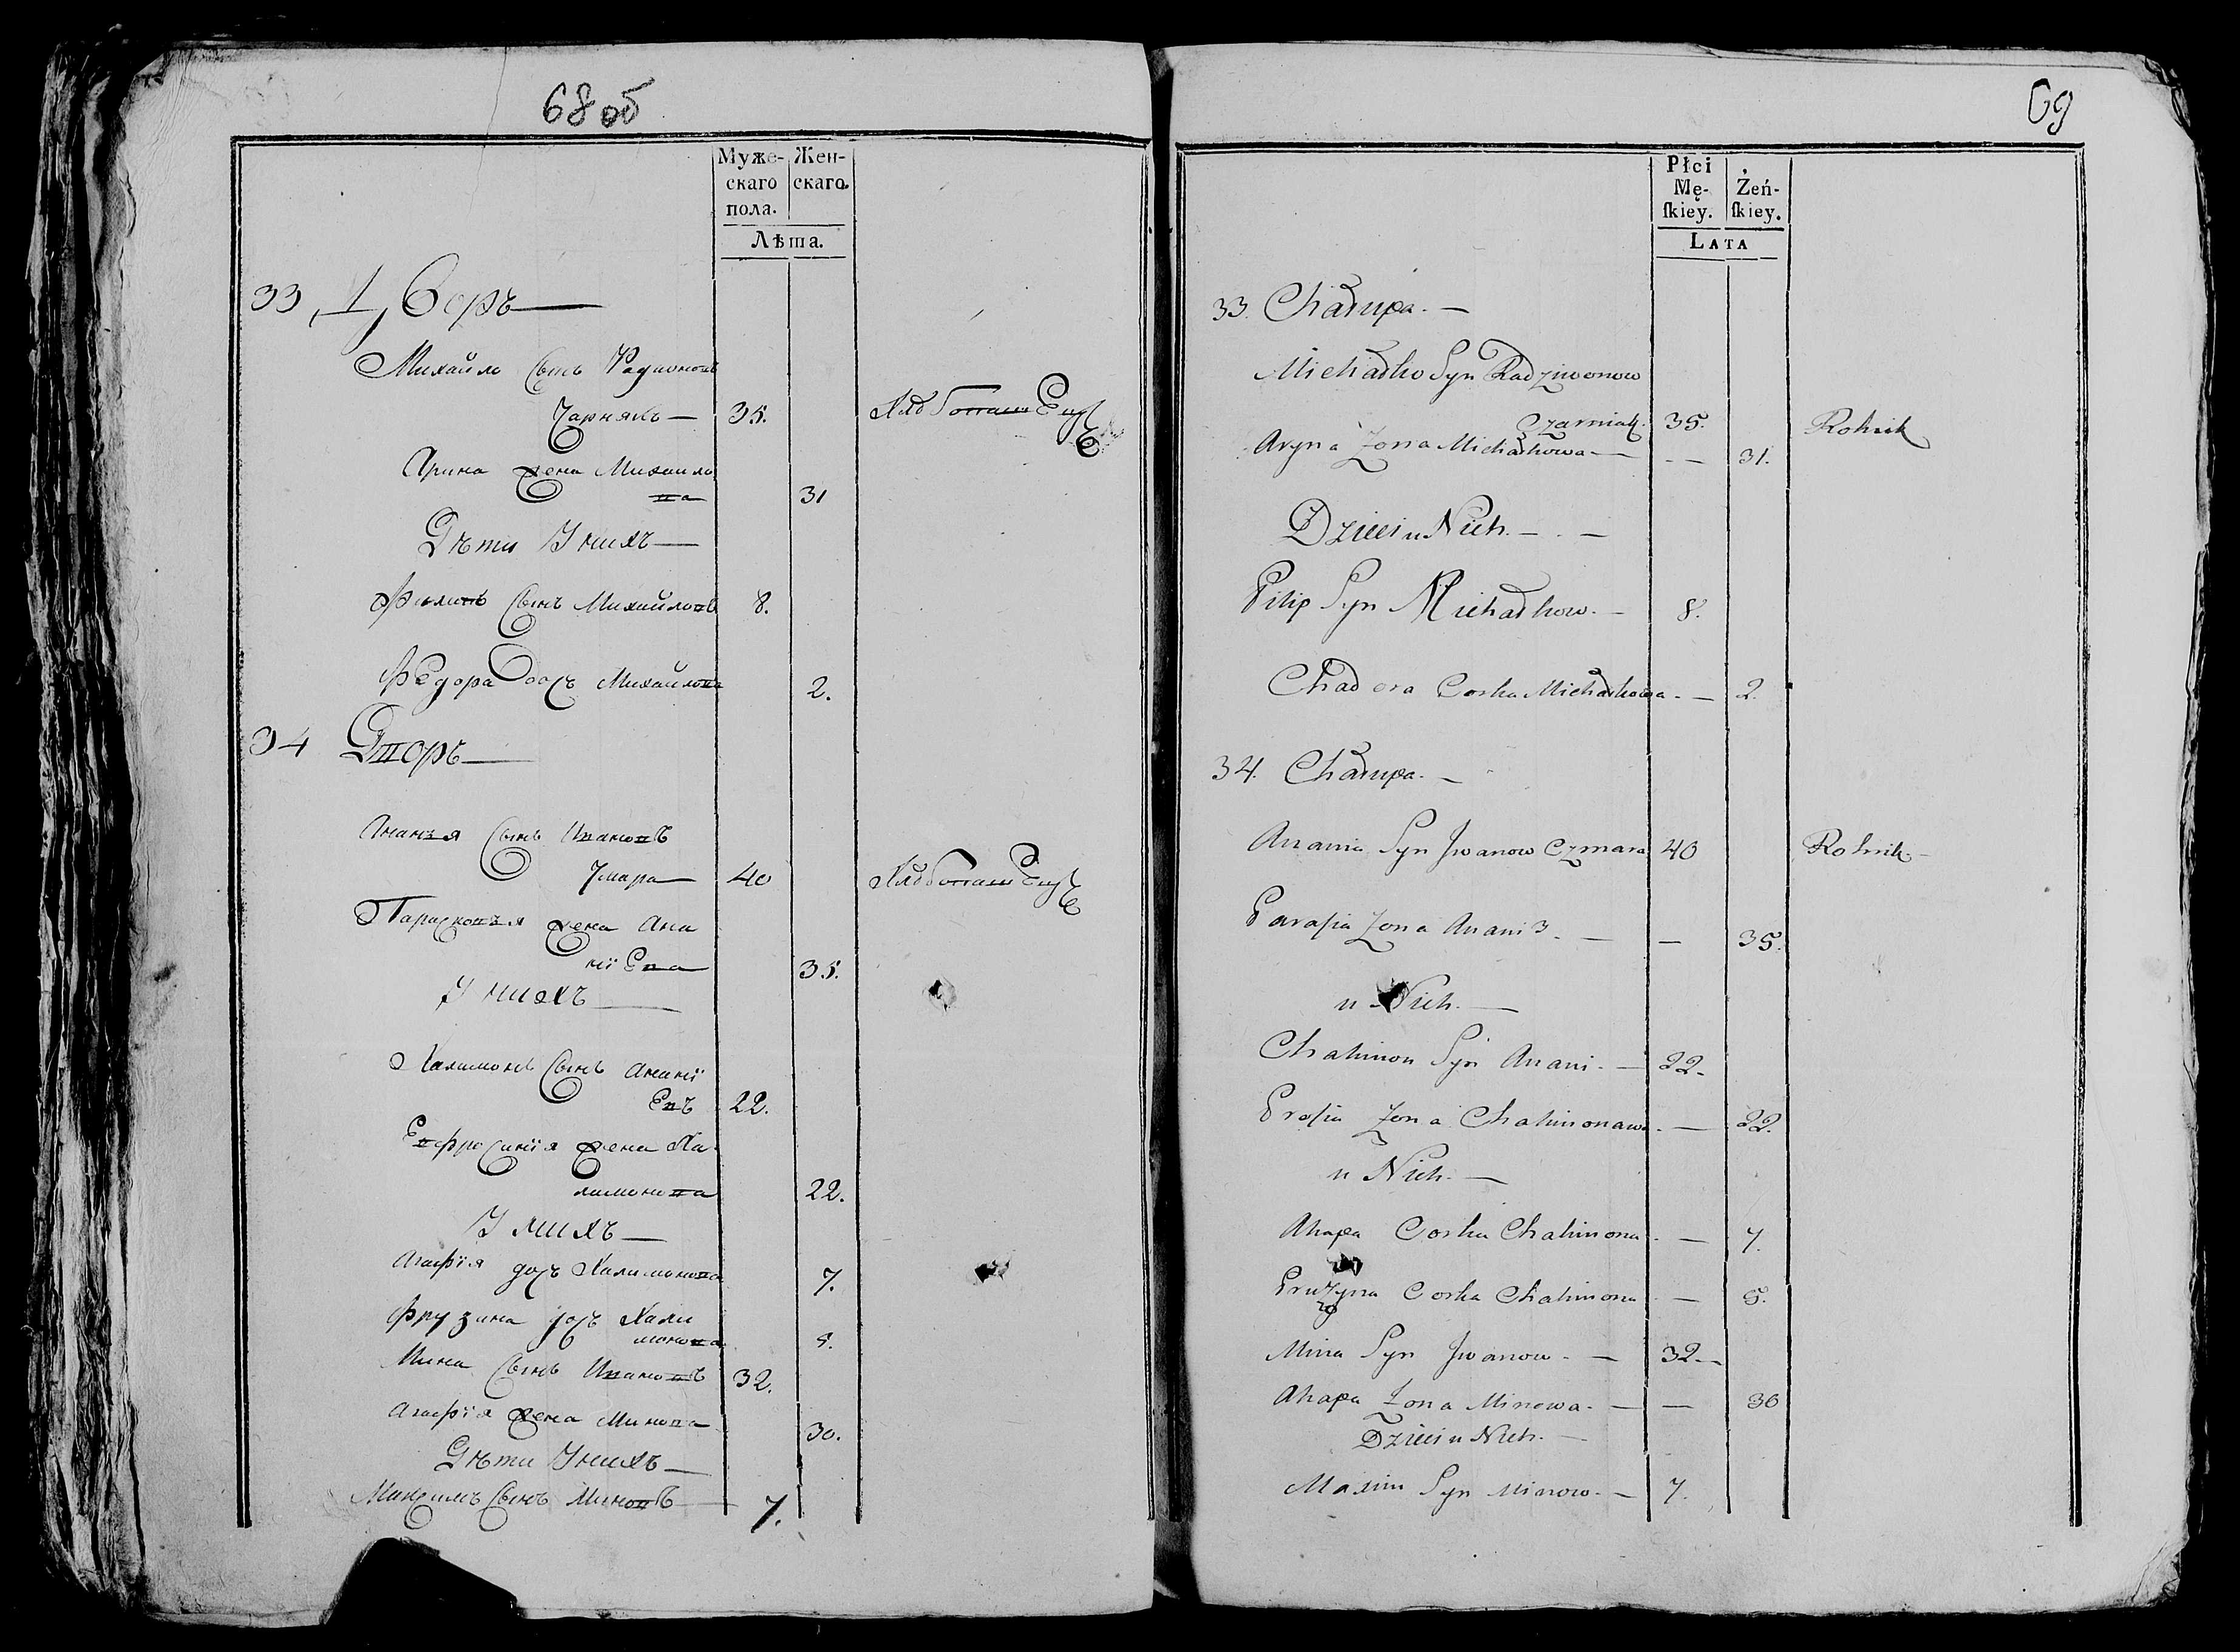 68 об
Муже-
скаго
пола.
Жен-
скаго.
Лѣта.
33 Дворъ —
Михайло Сынъ Радионовъ
Чарнякъ — 35. Хлѣбопашецъ
Арина жена Михайло
ва 31
Дѣти У нихъ —
Филипъ Сынъ Михайловъ 8.
Федора дочь Михайлова 2.
34 Дворъ —
Ананъя Сынъ Ивановъ
Чмара — 40 Хлѣбопашецъ
Парасковъя жена Ана
нїева 35.
У нихъ —
Халимонъ Сынъ Ананї
евъ 22.
Евфросинїя жена Ха
лимонова 22.
У нихъ —
Агафїя дочь Халимонова 7.
Фрузина дочь Хали
монова 5.
Мина Сынъ Ивановъ 32.
Агафїя жена Минова 30.
Дѣти У нихъ —
Максимъ Сынъ Миновъ — 7.
69
Płci
Mę-
ſkiey.
Żeń-
ſkiey.
LATA
33. Chałupa. —
Michałko Syn Radziwonow
Czarniak. 35. Rolnik
Aryna Zona Michałkowa — — 31.
Dzieci u Nich. — . —
Pilip Syn Michałkow. — 8.
Chadora Corka Michałkowa. — 2.
34. Chałupa. —
Anania Syn Jwanow Czmara 40 Rolnik —
Paraſia Zona Anani — — 35.
u Nich. —
Chalimon Syn Anani. — 22.
Praſia Zona Chalimonawa. — 22.
u Nich. —
Ahapa Corka Chalimona. — 7.
Pruzyna Corka Chalimona. — 5.
Mina Syn Jwanow. — 32. —
Ahapa Zona Minowa. — — 30
Dzieci u Nich. —
Maxim Syn Minow. — 7.